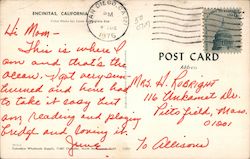 ENCINITAS, CALIFORNIA
SAN DIEGO
PM
1976
POST CARD
Hi Mom-
This is where I
am and that's the
ocean. I got very sun
burned and have had
to take it easy but
am reading and playing
bridge and loving it.
June
Mrs. H. Rubright
116
Pittsfield, Mass.
01201
To Allison